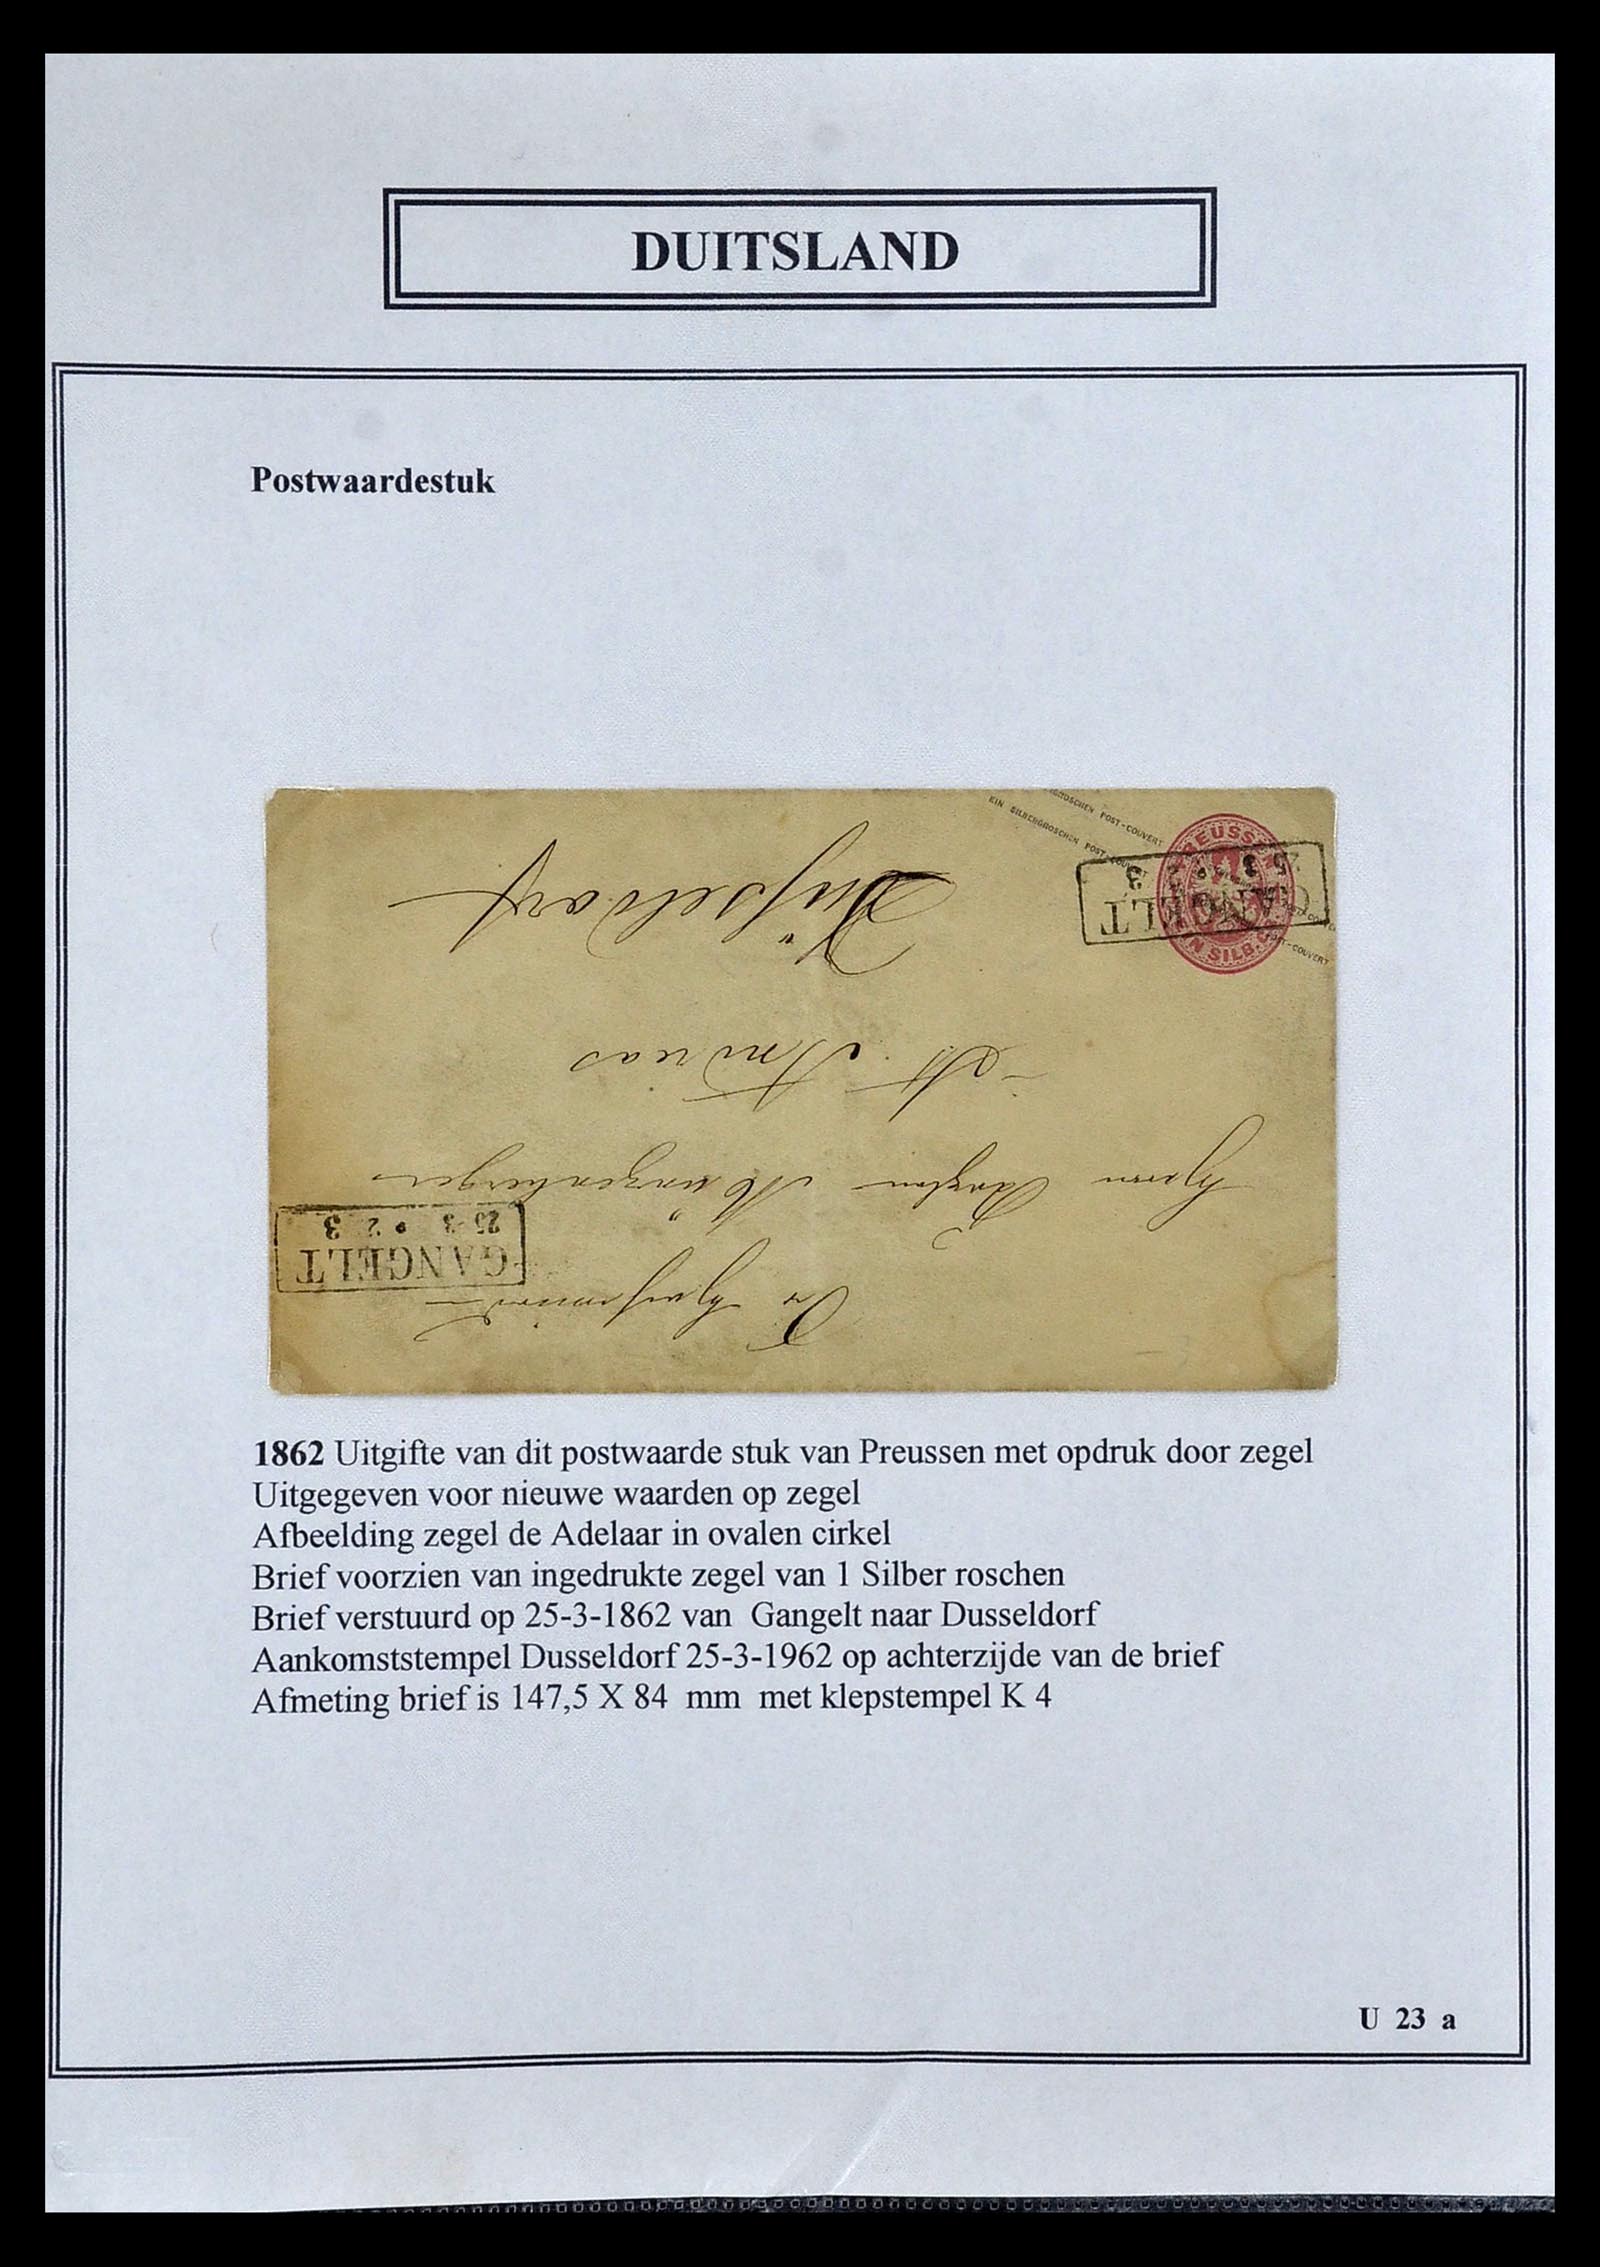 DUITSLAND
Postwaardestuk
SILBERGROSCHEN POST-COUVERT
EIN SILBERGROSCHEN POST-COUVERT
PREUSSEN
EIN SILB. GR.
GANGELT
25 3 * 2 3
Düsseldorf
St Andreas
Herrn
GANGELT
25 3 * 2 3
1862 Uitgifte van dit postwaarde stuk van Preussen met opdruk door zegel
Uitgegeven voor nieuwe waarden op zegel
Afbeelding zegel de Adelaar in ovalen cirkel
Brief voorzien van ingedrukte zegel van 1 Silber roschen
Brief verstuurd op 25-3-1862 van Gangelt naar Dusseldorf
Aankomststempel Dusseldorf 25-3-1962 op achterzijde van de brief
Afmeting brief is 147,5 X 84 mm met klepstempel K 4
U 23 a